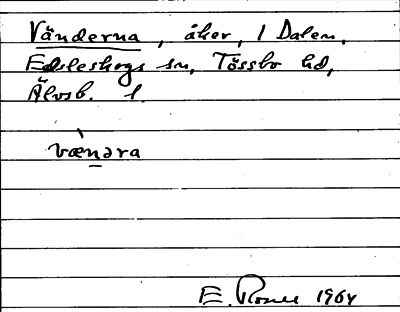 Vänderna, åker, 1 Dalen,
Edsleskogs sn, Tössbo hd,
Älvsb. l.
vænəra
E. 1964